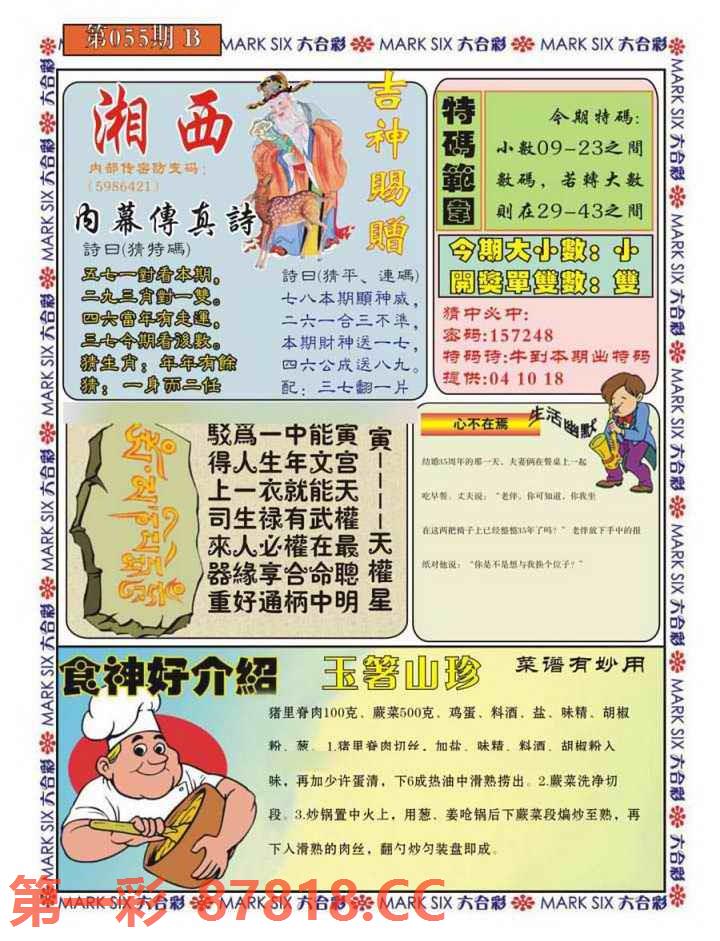 第055期 B
MARK SIX 六合彩 MARK SIX 六合彩 MARK SIX 六合彩
湘西
内部传密防支码：
（5986421）
内幕傳真詩
詩曰(猜特碼)
五七一對看本期，
二九三肖對一雙。
四六當年有走運，
三七今期看波數。
猜生肖：年年有餘
猜：一身而二任
吉神賜贈
詩曰(猜平、連碼)
七八本期顯神威，
二六一合三不準，
本期財神送一七，
四六公成送八九。
配：三七翻一片
特碼範圍
今期特碼：
小數09-23之間
數碼，若轉大數
則在29-43之間
今期大小數：小
開獎單雙數：雙
猜中必中：
密码:157248
特码诗:牛到本期出特码
提供:04 10 18
寅一一一天權星
寅宫天權最聰明
能文能武在命中
中年就有權合柄
一生衣禄必享通
爲人一生人緣好
駁得上司來器重
心不在焉
生活幽默
结婚35周年的那一天，夫妻俩在餐桌上一起
吃早餐。丈夫说："老伴，你可知道，你我坐
在这两把椅子上已经整整35年了吗？"老伴放下手中的报
纸对他说："你是不是想与我换个位子？"
食神好介紹
玉箸山珍
菜谱有妙用
猪里脊肉100克、蕨菜500克、鸡蛋、料酒、盐、味精、胡椒
粉、葱。1.猪里脊肉切丝，加盐、味精、料酒、胡椒粉入
味，再加少许蛋清，下6成热油中滑熟捞出。2.蕨菜洗净切
段。3.炒锅置中火上，用葱、姜呛锅后下蕨菜段煸炒至熟，再
下入滑熟的肉丝，翻勺炒匀装盘即成。
第一彩 87818.CC
MARK SIX 六合彩 MARK SIX 六合彩 MARK SIX 六合彩 MARK SIX 六合彩